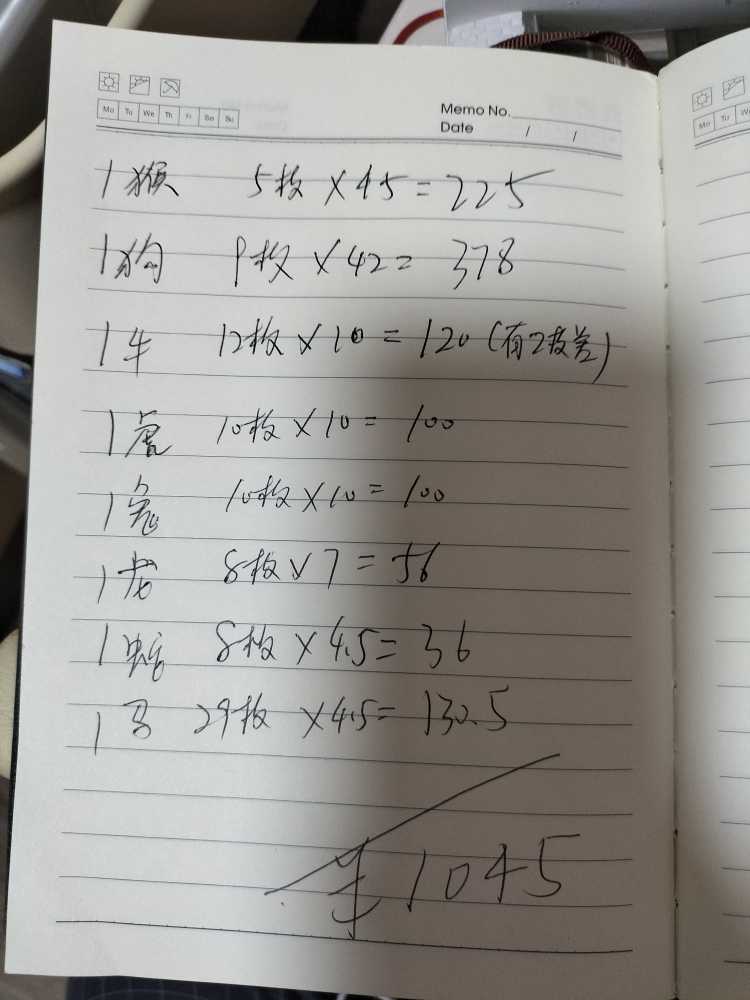 Mo Tu We Th Fr Sa Su
Memo No.
Date / /
1猴 5枚×45=225
1狗 9枚×42=378
1牛 12枚×10=120(有2枚差)
1虎 10枚×10=100
1兔 10枚×10=100
1龙 8枚×7=56
1蛇 8枚×4.5=36
1马 29枚×4.5=130.5
¥1045
Mo Tu We